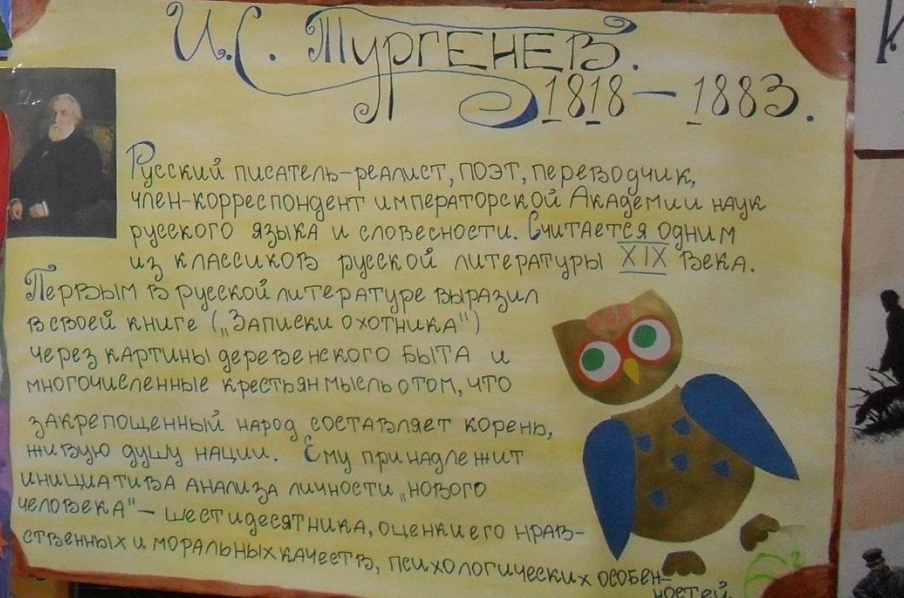 И.С. Тургенев.
1818 – 1883.
Русский писатель-реалист, поэт, переводчик,
член-корреспондент императорской Академии наук
русского языка и словесности. Считается одним
из классиков русской литературы XIX века.
Первым в русской литературе выразил
в своей книге („Записки охотника")
через картины деревенского быта и
многочисленные крестьян мысль о том, что
закрепощенный народ составляет корень,
живую душу нации. Ему принадлежит
инициатива анализа личности „нового
человека" – шестидесятника, оценки его нрав-
ственных и моральных качеств, психологических особен-
ностей.